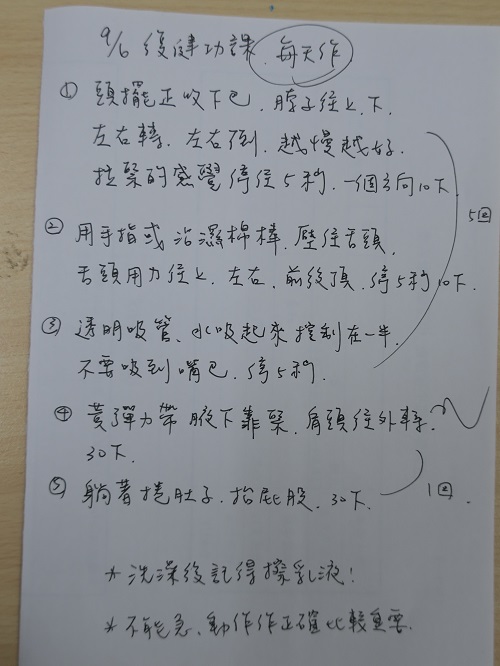 9/6 復健功課、每天作
① 頭擺正收下巴、脖子往上、下、
左右轉、左右倒、越慢越好、
拉緊的感覺停住5秒、一個方向10下
5回
② 用手指或沾濕棉棒、壓住舌頭、
舌頭用力往上、左右、前後頂、停5秒10下、
③ 透明吸管、水吸起來控制在一半、
不要吸到嘴巴、停5秒、
④ 黃彈力帶 腋下靠緊、肩頭往外轉、
30下、
⑤ 躺著捲肚子、抬屁股、30下、
1回、
* 洗澡後記得擦乳液！
* 不能急、動作作正確比較重要、